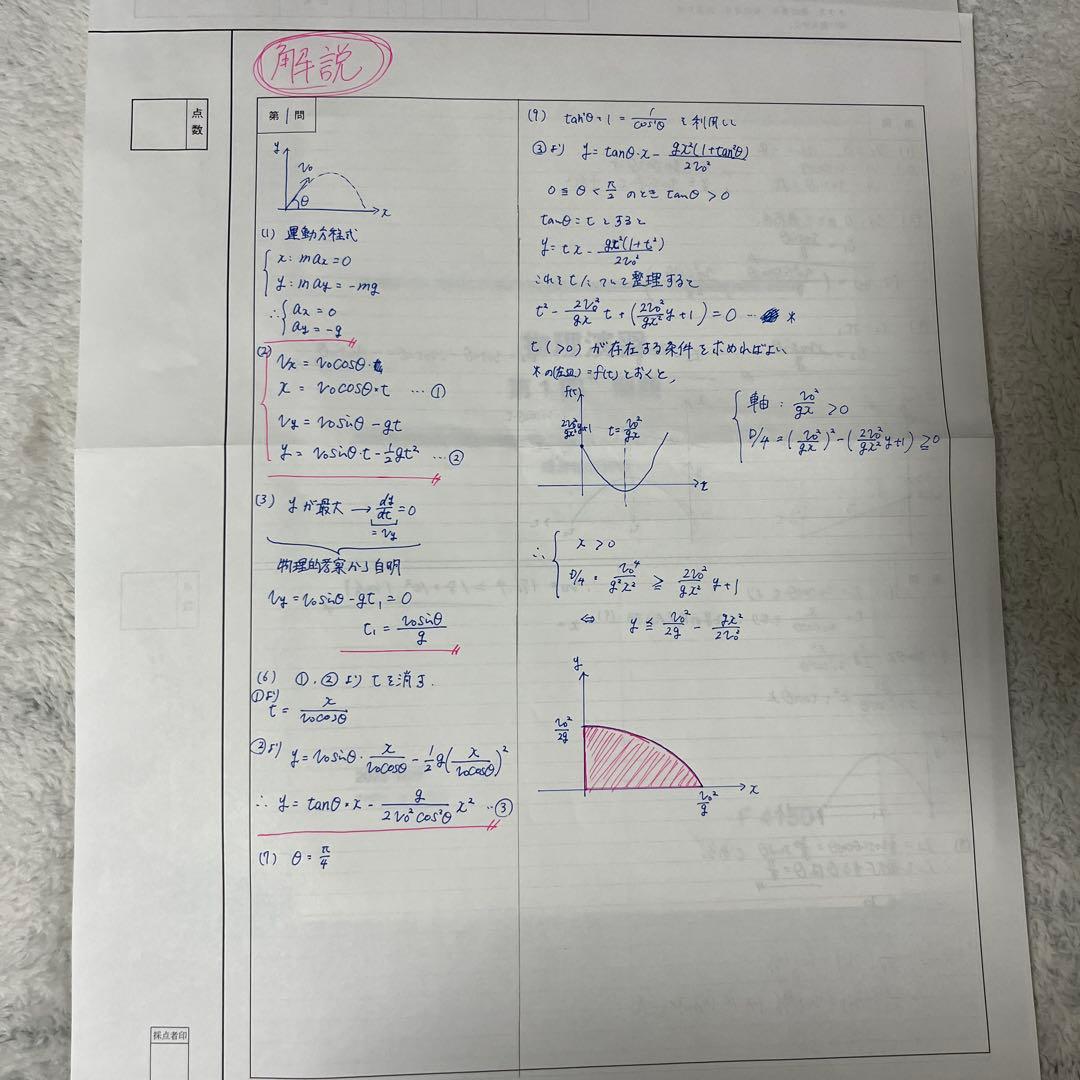 解説
点数
第1問
y
v₀
θ
x
(1) 運動方程式
x: maₓ = 0
y: ma_y = -mg
∴ aₓ = 0
a_y = -g
(2) vₓ = v₀cosθ
x = v₀cosθ・t …①
v_y = v₀sinθ - gt
y = v₀sinθ・t - 1/2 gt² …②
(3) yが最大 → dy/dt = 0
= v_y
物理的考察から自明
v_y = v₀sinθ - gt₁ = 0
t₁ = v₀sinθ/g
(6) ①、②よりtを消す.
①より
t = x/(v₀cosθ)
②より y = v₀sinθ・x/(v₀cosθ) - 1/2 g(x/(v₀cosθ))²
∴ y = tanθ・x - g/(2v₀²cos²θ) x² …③
(7) θ = π/4
採点者印
(9) tan²θ+1 = 1/cos²θ を利用して
③より y = tanθ・x - gx²(1+tan²θ)/(2v₀²)
0 ≦ θ < π/2 のとき tanθ > 0
tanθ = t とすると
y = tx - gx²(1+t²)/(2v₀²)
これをtについて整理すると
t² - 2v₀²/(gx) t + (2v₀²/(gx²) y + 1) = 0 … *
t (>0) が存在する条件を求めればよい
*の(左辺) = f(t) とおくと,
f(t)
2v₀²/(gx²) y + 1
t = v₀²/(gx)
t
軸: v₀²/(gx) > 0
D/4 = (v₀²/(gx))² - (2v₀²/(gx²) y + 1) ≧ 0
∴ x > 0
D/4 = v₀⁴/(g²x²) ≧ 2v₀²/(gx²) y + 1
⇔ y ≦ v₀²/(2g) - gx²/(2v₀²)
y
v₀²/(2g)
v₀²/g
x